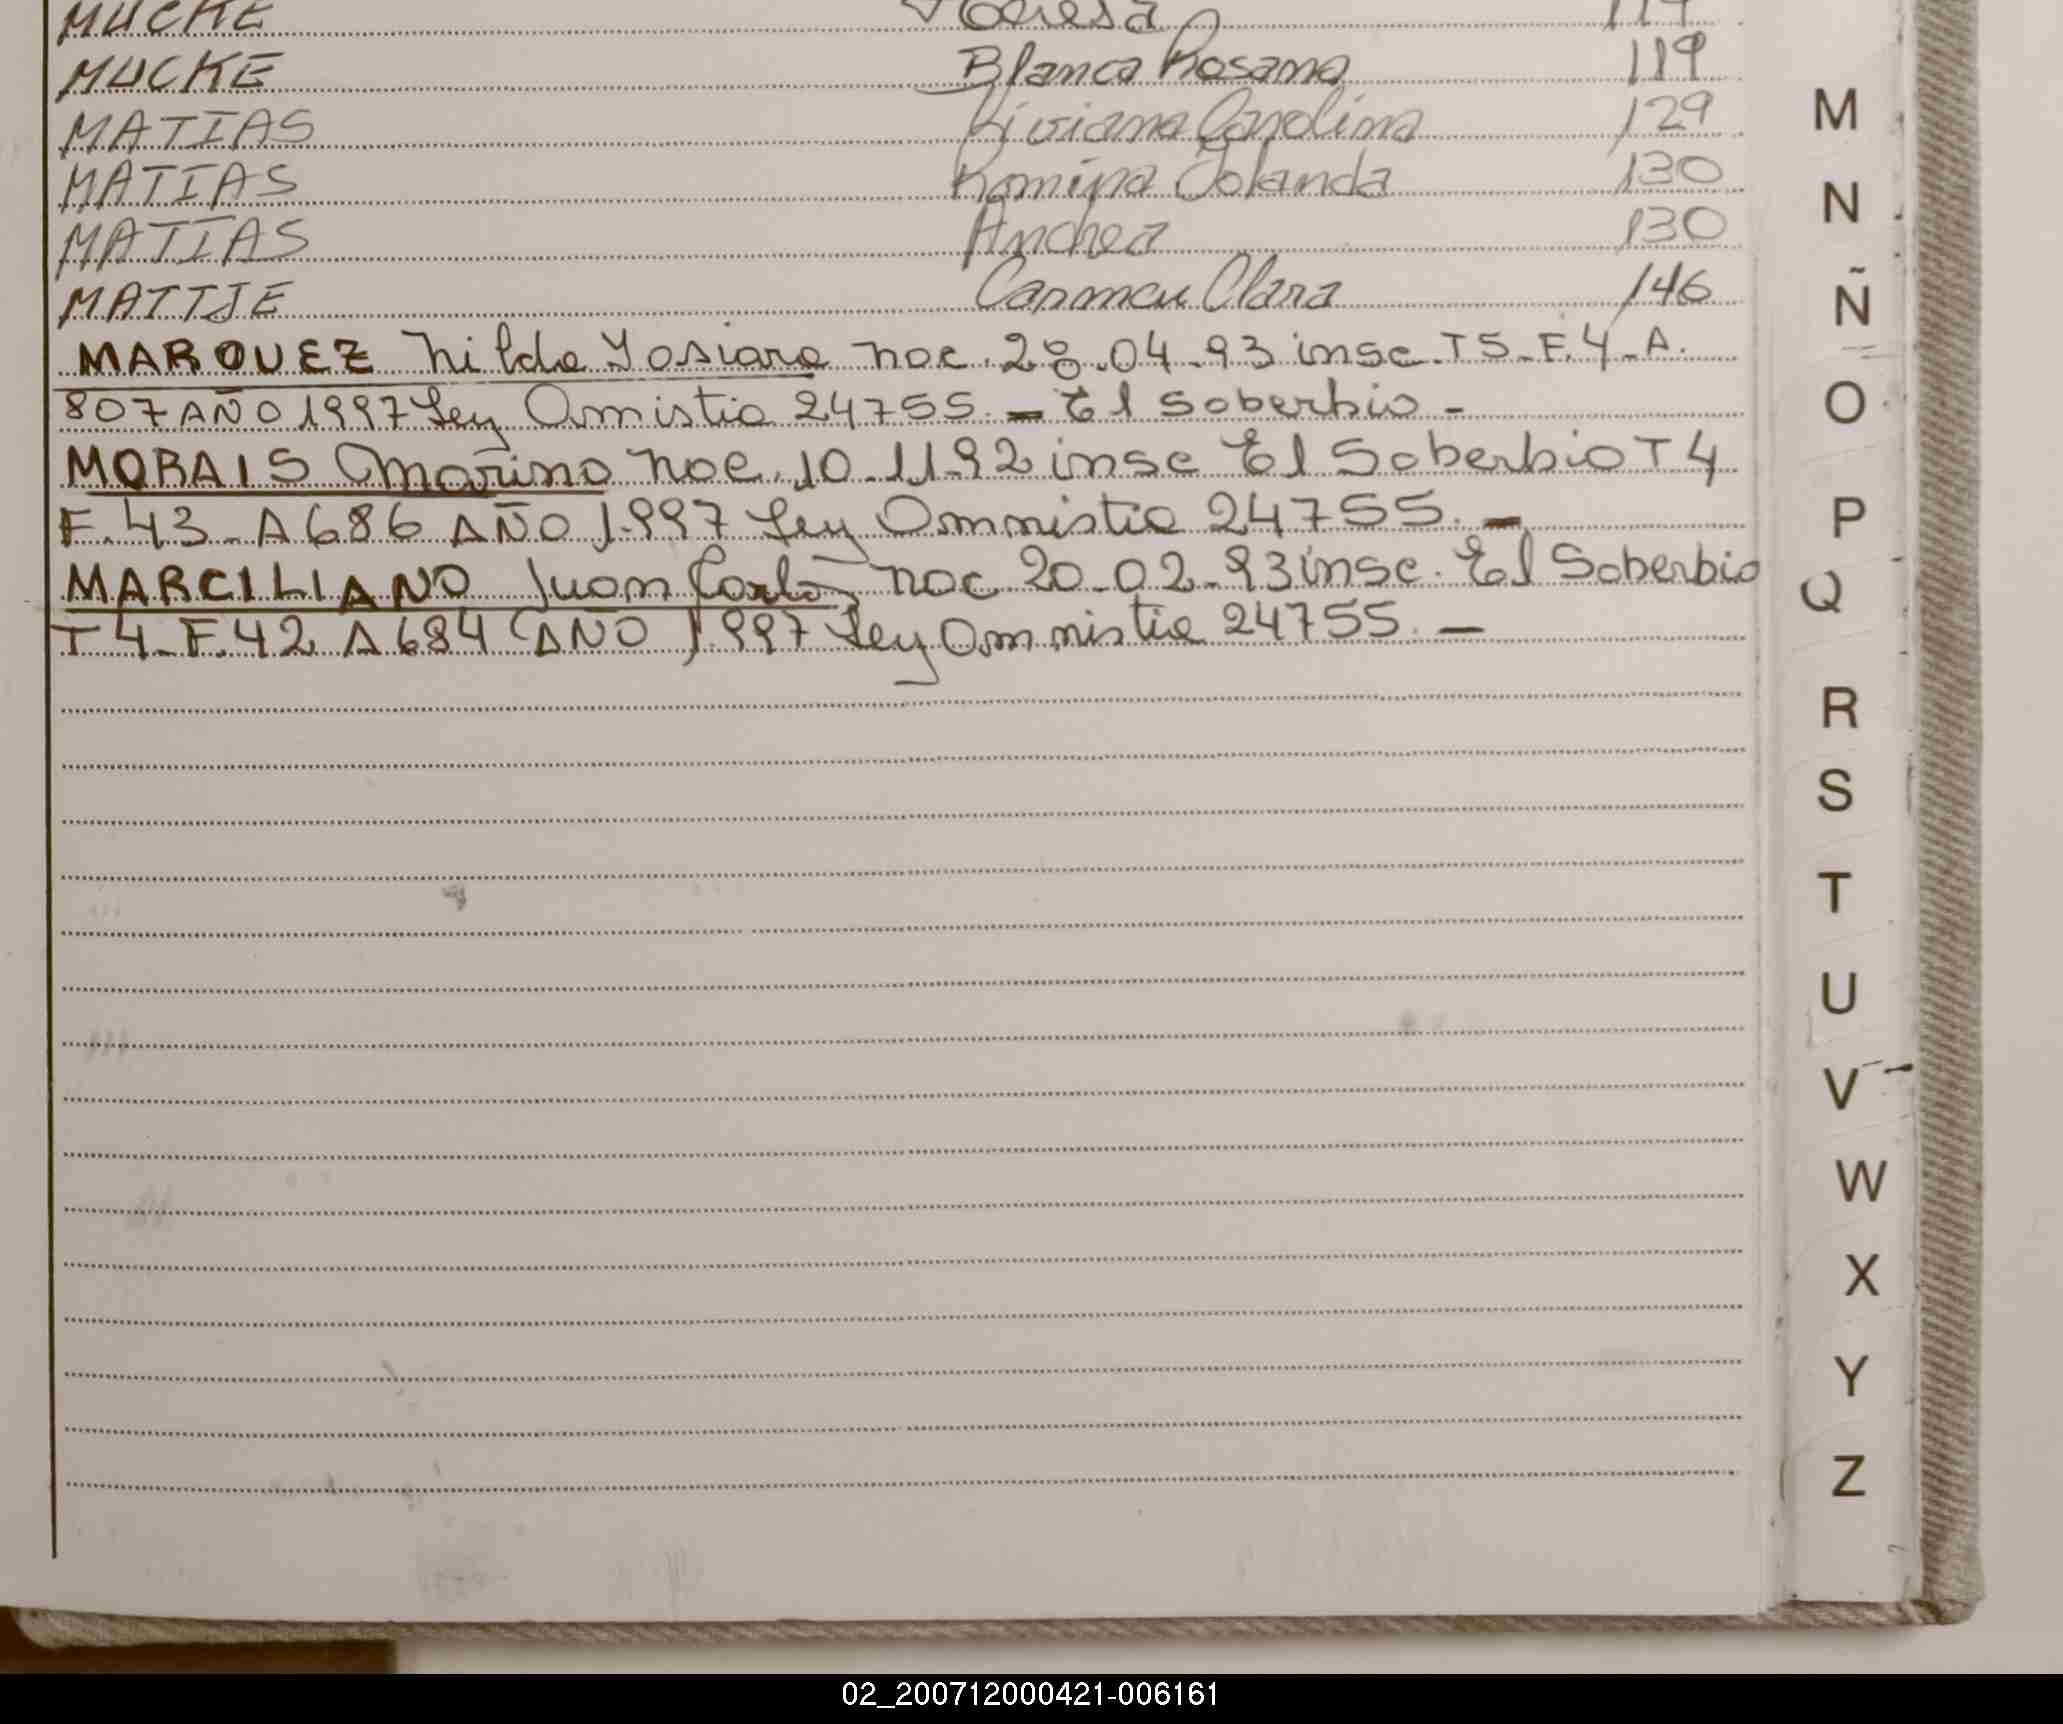 MUCKE Teresa 119
MUCKE Blanca Rosana 119
MATIAS Viviana Carolina 129
MATIAS Romina Yolanda 130
MATIAS Andrea 130
MATTJE Carmen Clara 146
MARQUEZ Nilda Yosiara nac. 28.04-93 insc. T5-F.4-A.
807 AÑO 1997 Ley Amistia 24755.- El Soberbio-
MORAIS Marino nac. 10-11-92 insc El Soberbio T4
F.43-A686 AÑO 1.997 Ley Amnistia 24755.-
MARCILIANO Juan Carlos nac 20-02-93 insc. El Soberbio
T4-F.42 A684 AÑO 1.997 Ley Amnistia 24755.-
M
N
Ñ
O
P
Q
R
S
T
U
V
W
X
Y
Z
02_200712000421-006161